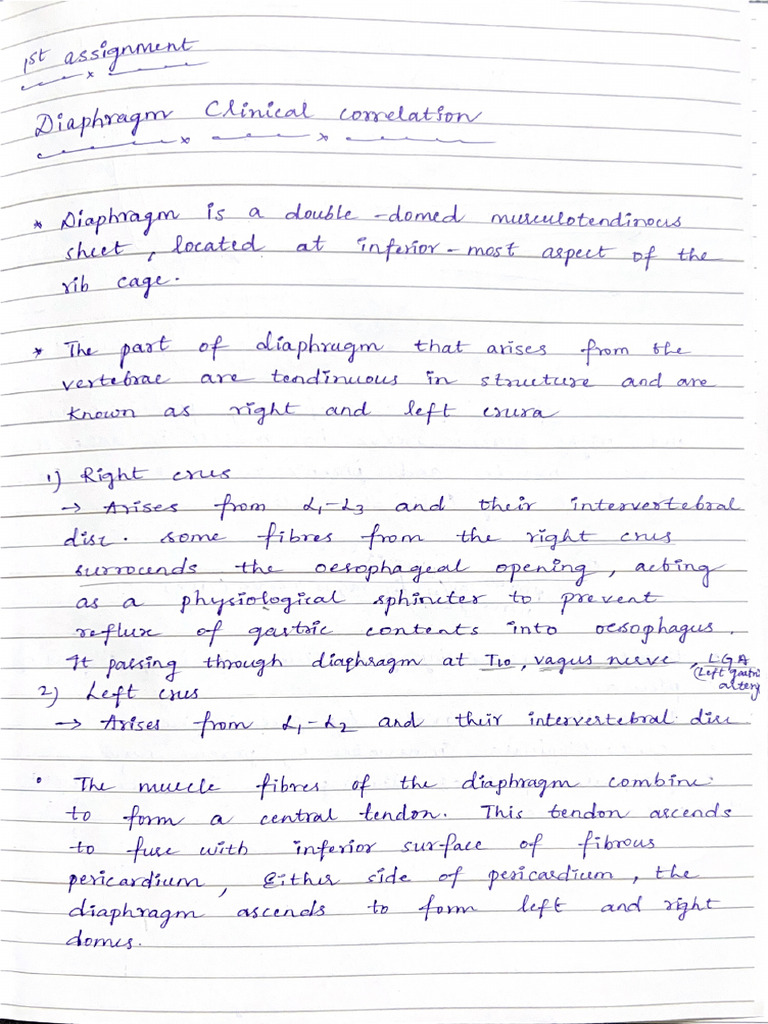 1st assignment
Diaphragm Clinical correlation
* Diaphragm is a double-domed musculotendinous
sheet, located at inferior-most aspect of the
rib cage.
* The part of diaphragm that arises from the
vertebrae are tendinuous in structure and are
known as right and left crura
1) Right crus
→ Arises from L1-L3 and their intervertebral
disc. Some fibres from the right crus
surrounds the oesophageal opening, acting
as a physiological sphincter to prevent
reflux of gastric contents into oesophagus.
It passing through diaphragm at T10, vagus nerve, LGA
(Left gastric
artery
2) Left crus
→ Arises from L1-L2 and their intervertebral disc
• The muscle fibres of the diaphragm combine
to form a central tendon. This tendon ascends
to fuse with inferior surface of fibrous
pericardium, Either side of pericardium, the
diaphragm ascends to form left and right
domes.